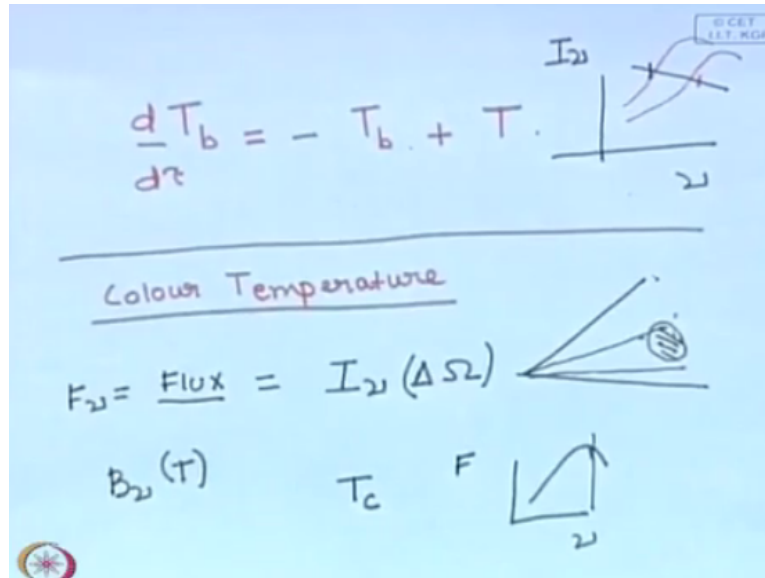 © CET
I.I.T. KGP
I_ν
d/dτ T_b = - T_b . + T .
ν
Colour Temperature
F_ν = Flux = I_ν (ΔΩ)
B_ν (T)
T_c
F
ν